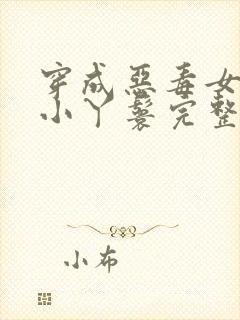 穿成恶毒女
小丫鬟完整
小布